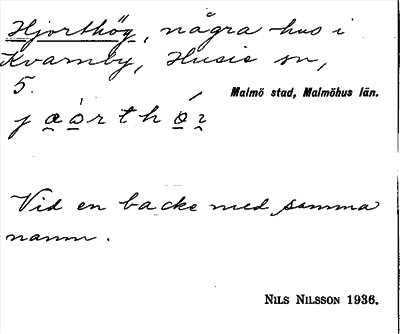 Hjorthög, några hus i
Kvarnby, Husie sn,
5.
Malmö stad, Malmöhus län.
Vid en backe med samma
namn.
NILS NILSSON 1936.